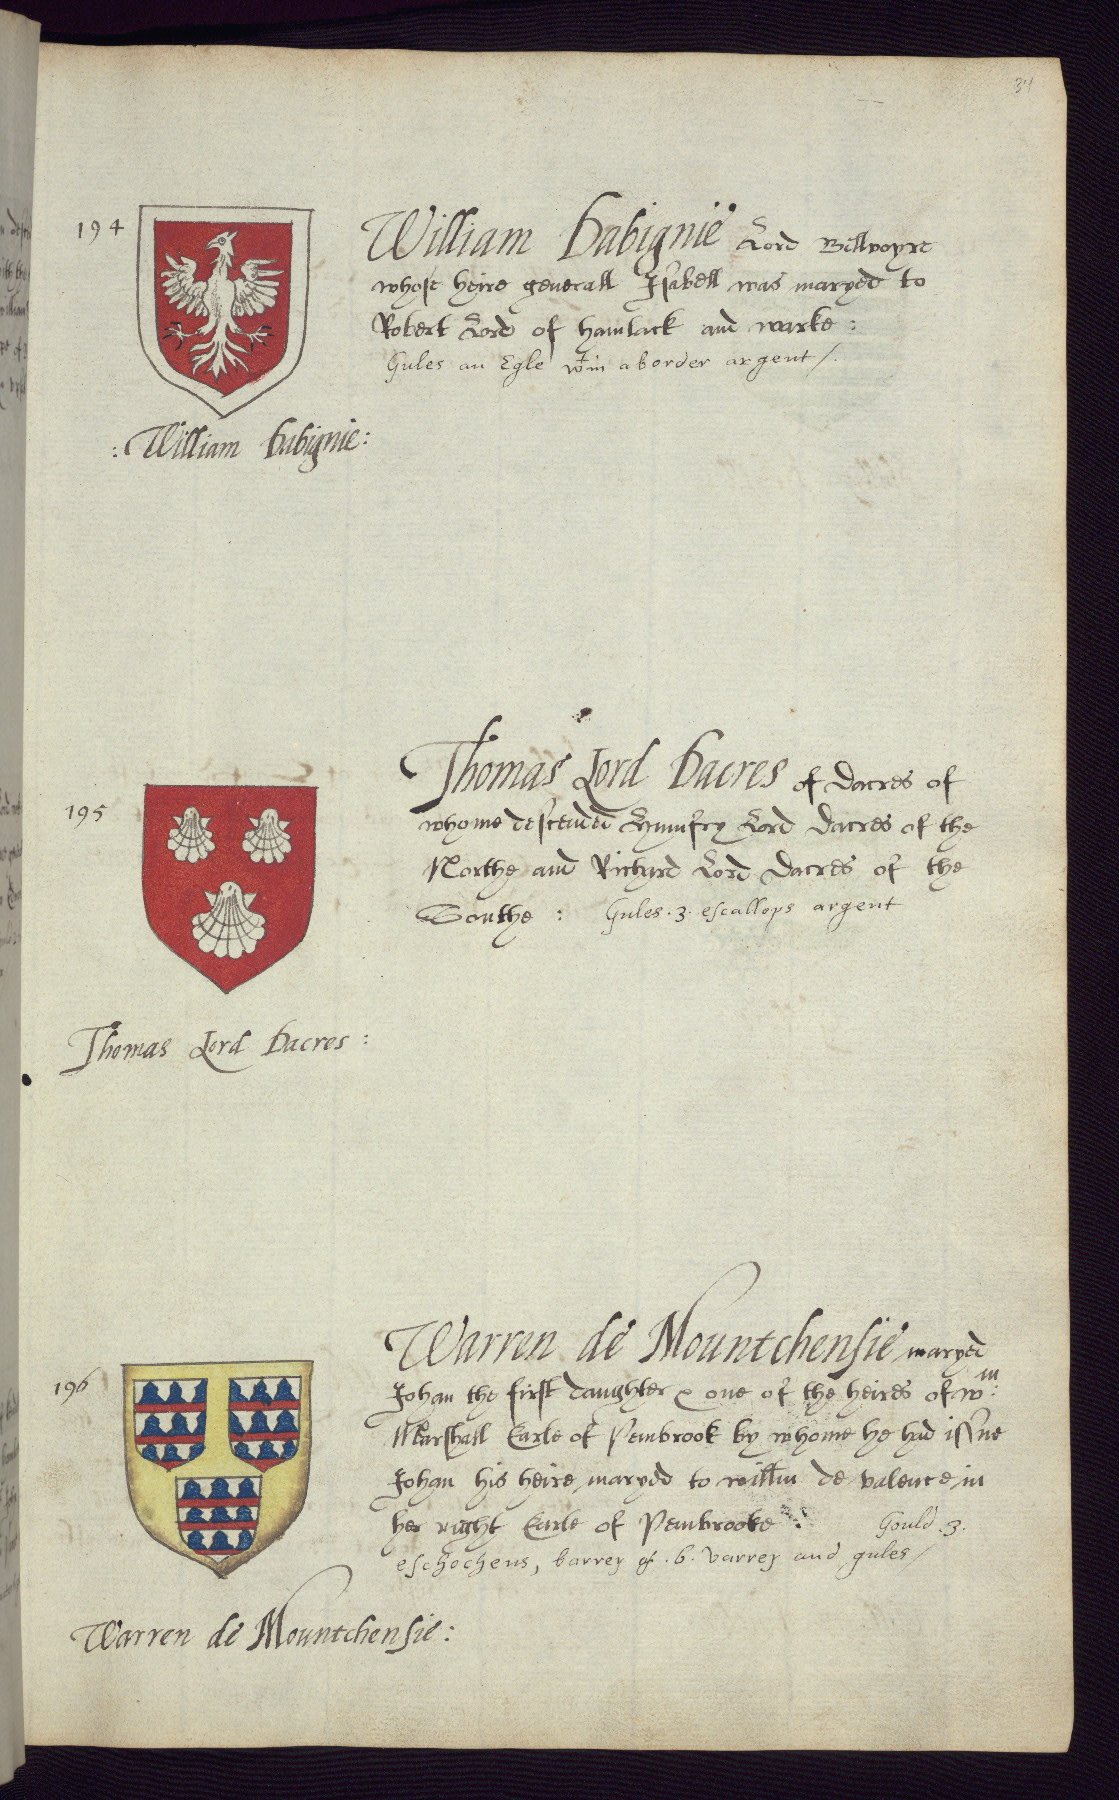 34
194
William Dabignie Lord Bellvoyre
whose heire generall Isabell was maryed to
Robert Lord of hamlack and warke :
Gules an Egle wtin a border argent /.
: William Dabignie :
195
Thomas Lord Dacres of Dacres of
whome descended Humfrey Lord Dacres of the
Northe and Richard Lord Dacres of the
Southe : Gules .3. escallops argent
Thomas Lord Dacres :
196
Warren de Mountchensie maryed
Johan the first daughter & one of the heires of wm:
Marshall Earle of Penbrook by whome he had issue
Johan his heire maryed to willm de valence in
her right Earle of Penbrooke : Gould .3.
eschochens, barrey of .6. varrey and gules /
Warren de Mountchensie :